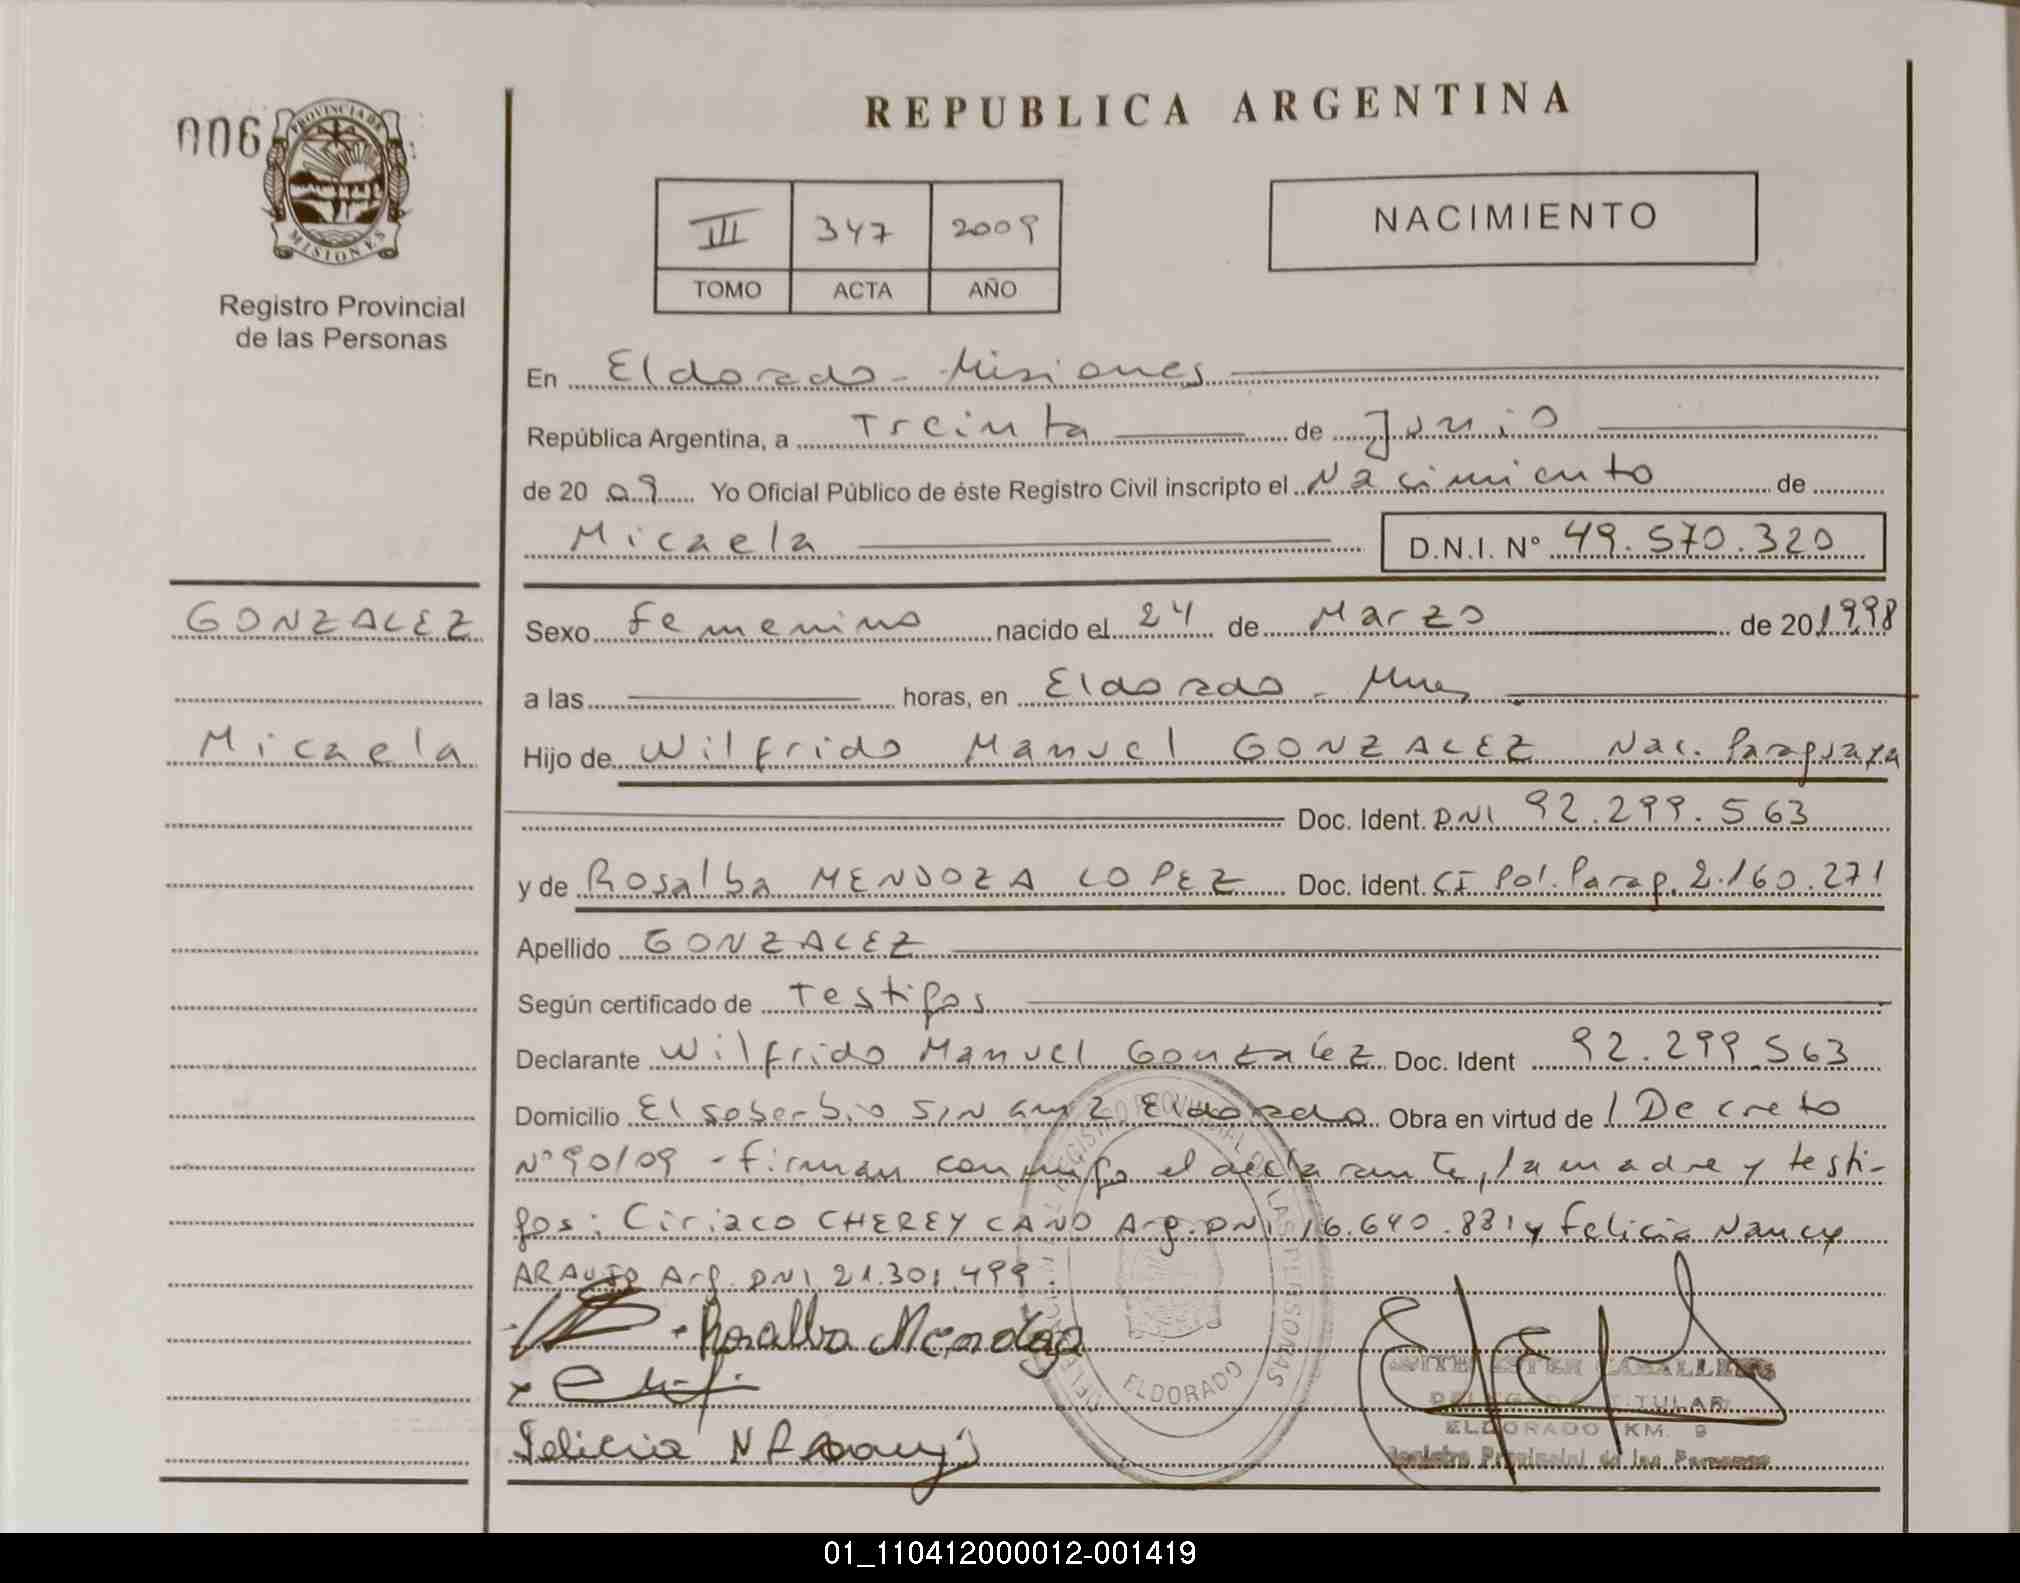 REPUBLICA ARGENTINA
006
PROVINCIA DE
MISIONES
Registro Provincial
de las Personas
III 347 2009
TOMO ACTA AÑO
NACIMIENTO
En Eldorado - Misiones
República Argentina, a Treinta de Junio
de 20 09 Yo Oficial Público de éste Registro Civil inscripto el Nacimiento de
Micaela D.N.I. Nº 49.570.320
GONZALEZ
Micaela
Sexo Femenino nacido el 24 de Marzo de 20 1998
a las horas, en Eldorado - Mnes
Hijo de Wilfrido Manuel GONZALEZ Nac. Paraguaya
Doc. Ident. DNI 92.299.563
y de Rosalba MENDOZA LOPEZ Doc. Ident. CI Pol. Parag. 2.160.271
Apellido GONZALEZ
Según certificado de Testigos
Declarante Wilfrido Manuel Gonzalez Doc. Ident 92.299.563
Domicilio El soberbio S/N Eldorado Obra en virtud de / Decreto
Nº 90/09 - Firman conmigo el declarante, la madre y testi-
gos: Ciriaco CHEREY CANO Arg. DNI 16.640.881 y Felicia Nancy
ARAUJO Arg. DNI 21.301.499.
Rosalba Mendoza
Felicia N Araujo
REGISTRO PROVINCIAL DE LAS PERSONAS
ELDORADO
TITULAR
ELDORADO KM. 9
Registro Provincial de las Personas
01_110412000012-001419